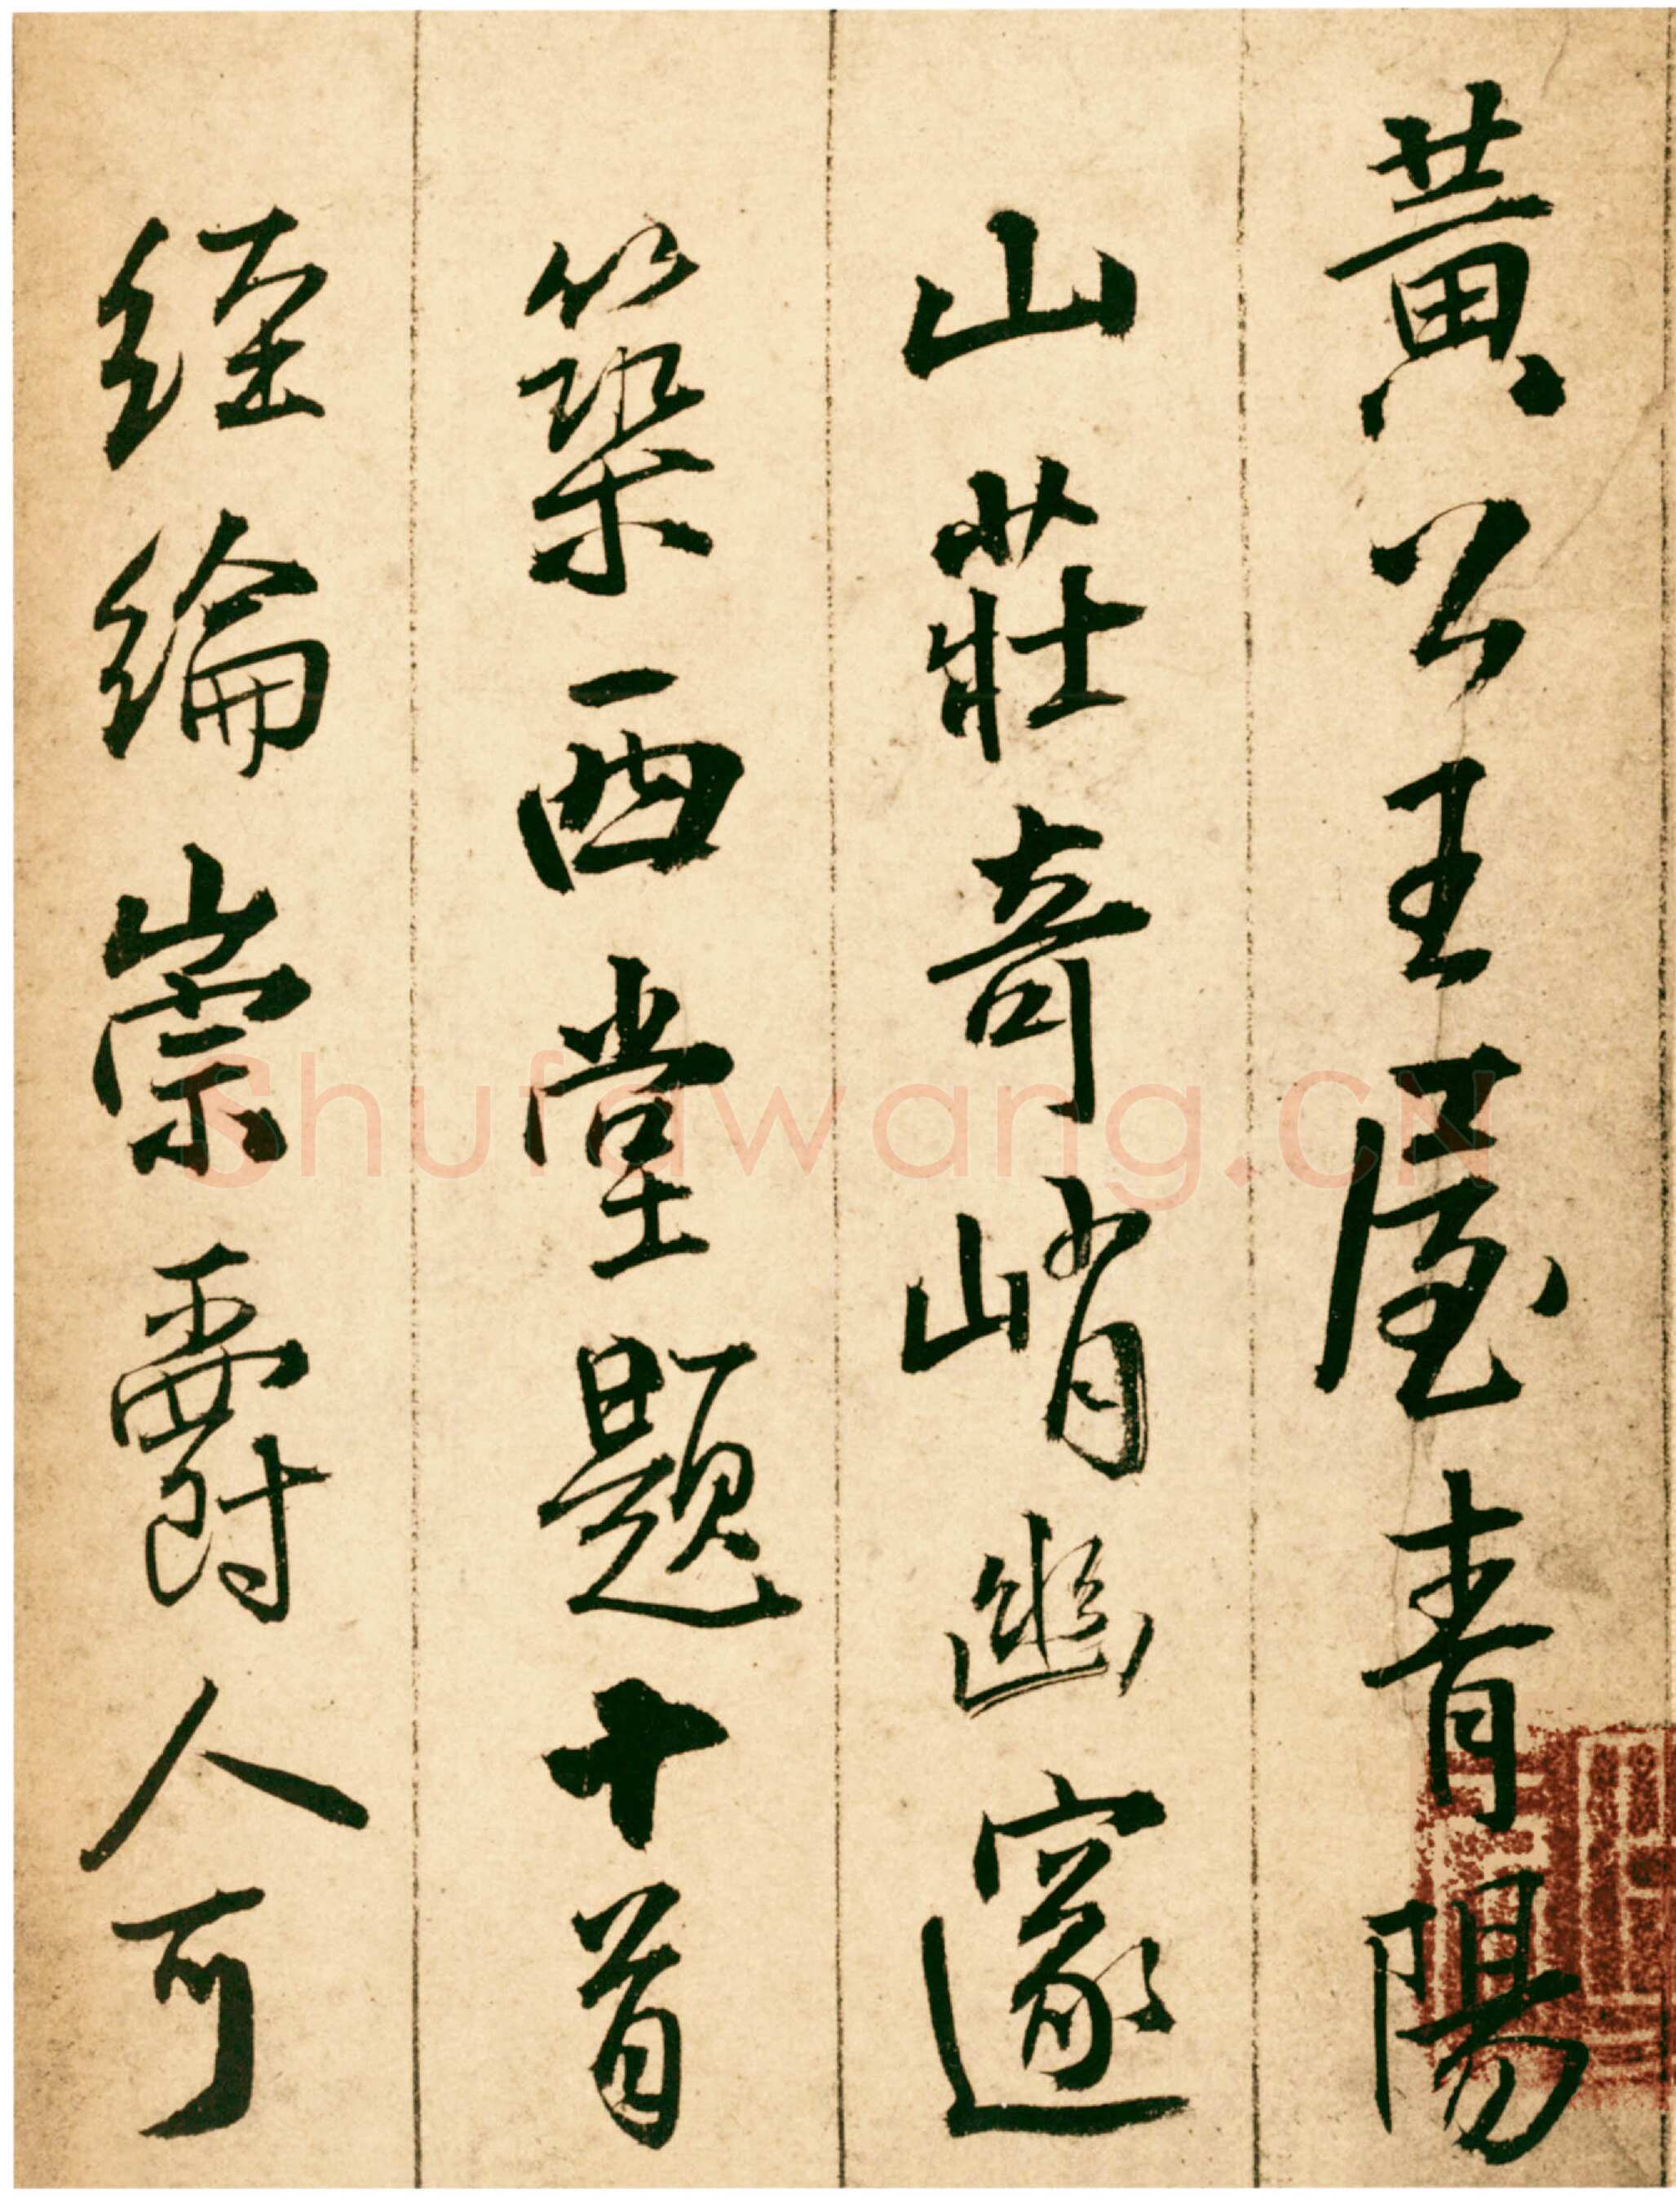 黃公王屋青陽
山莊奇峭幽邃
築西堂題十首
經綸崇爵人可
Shufawang.CN